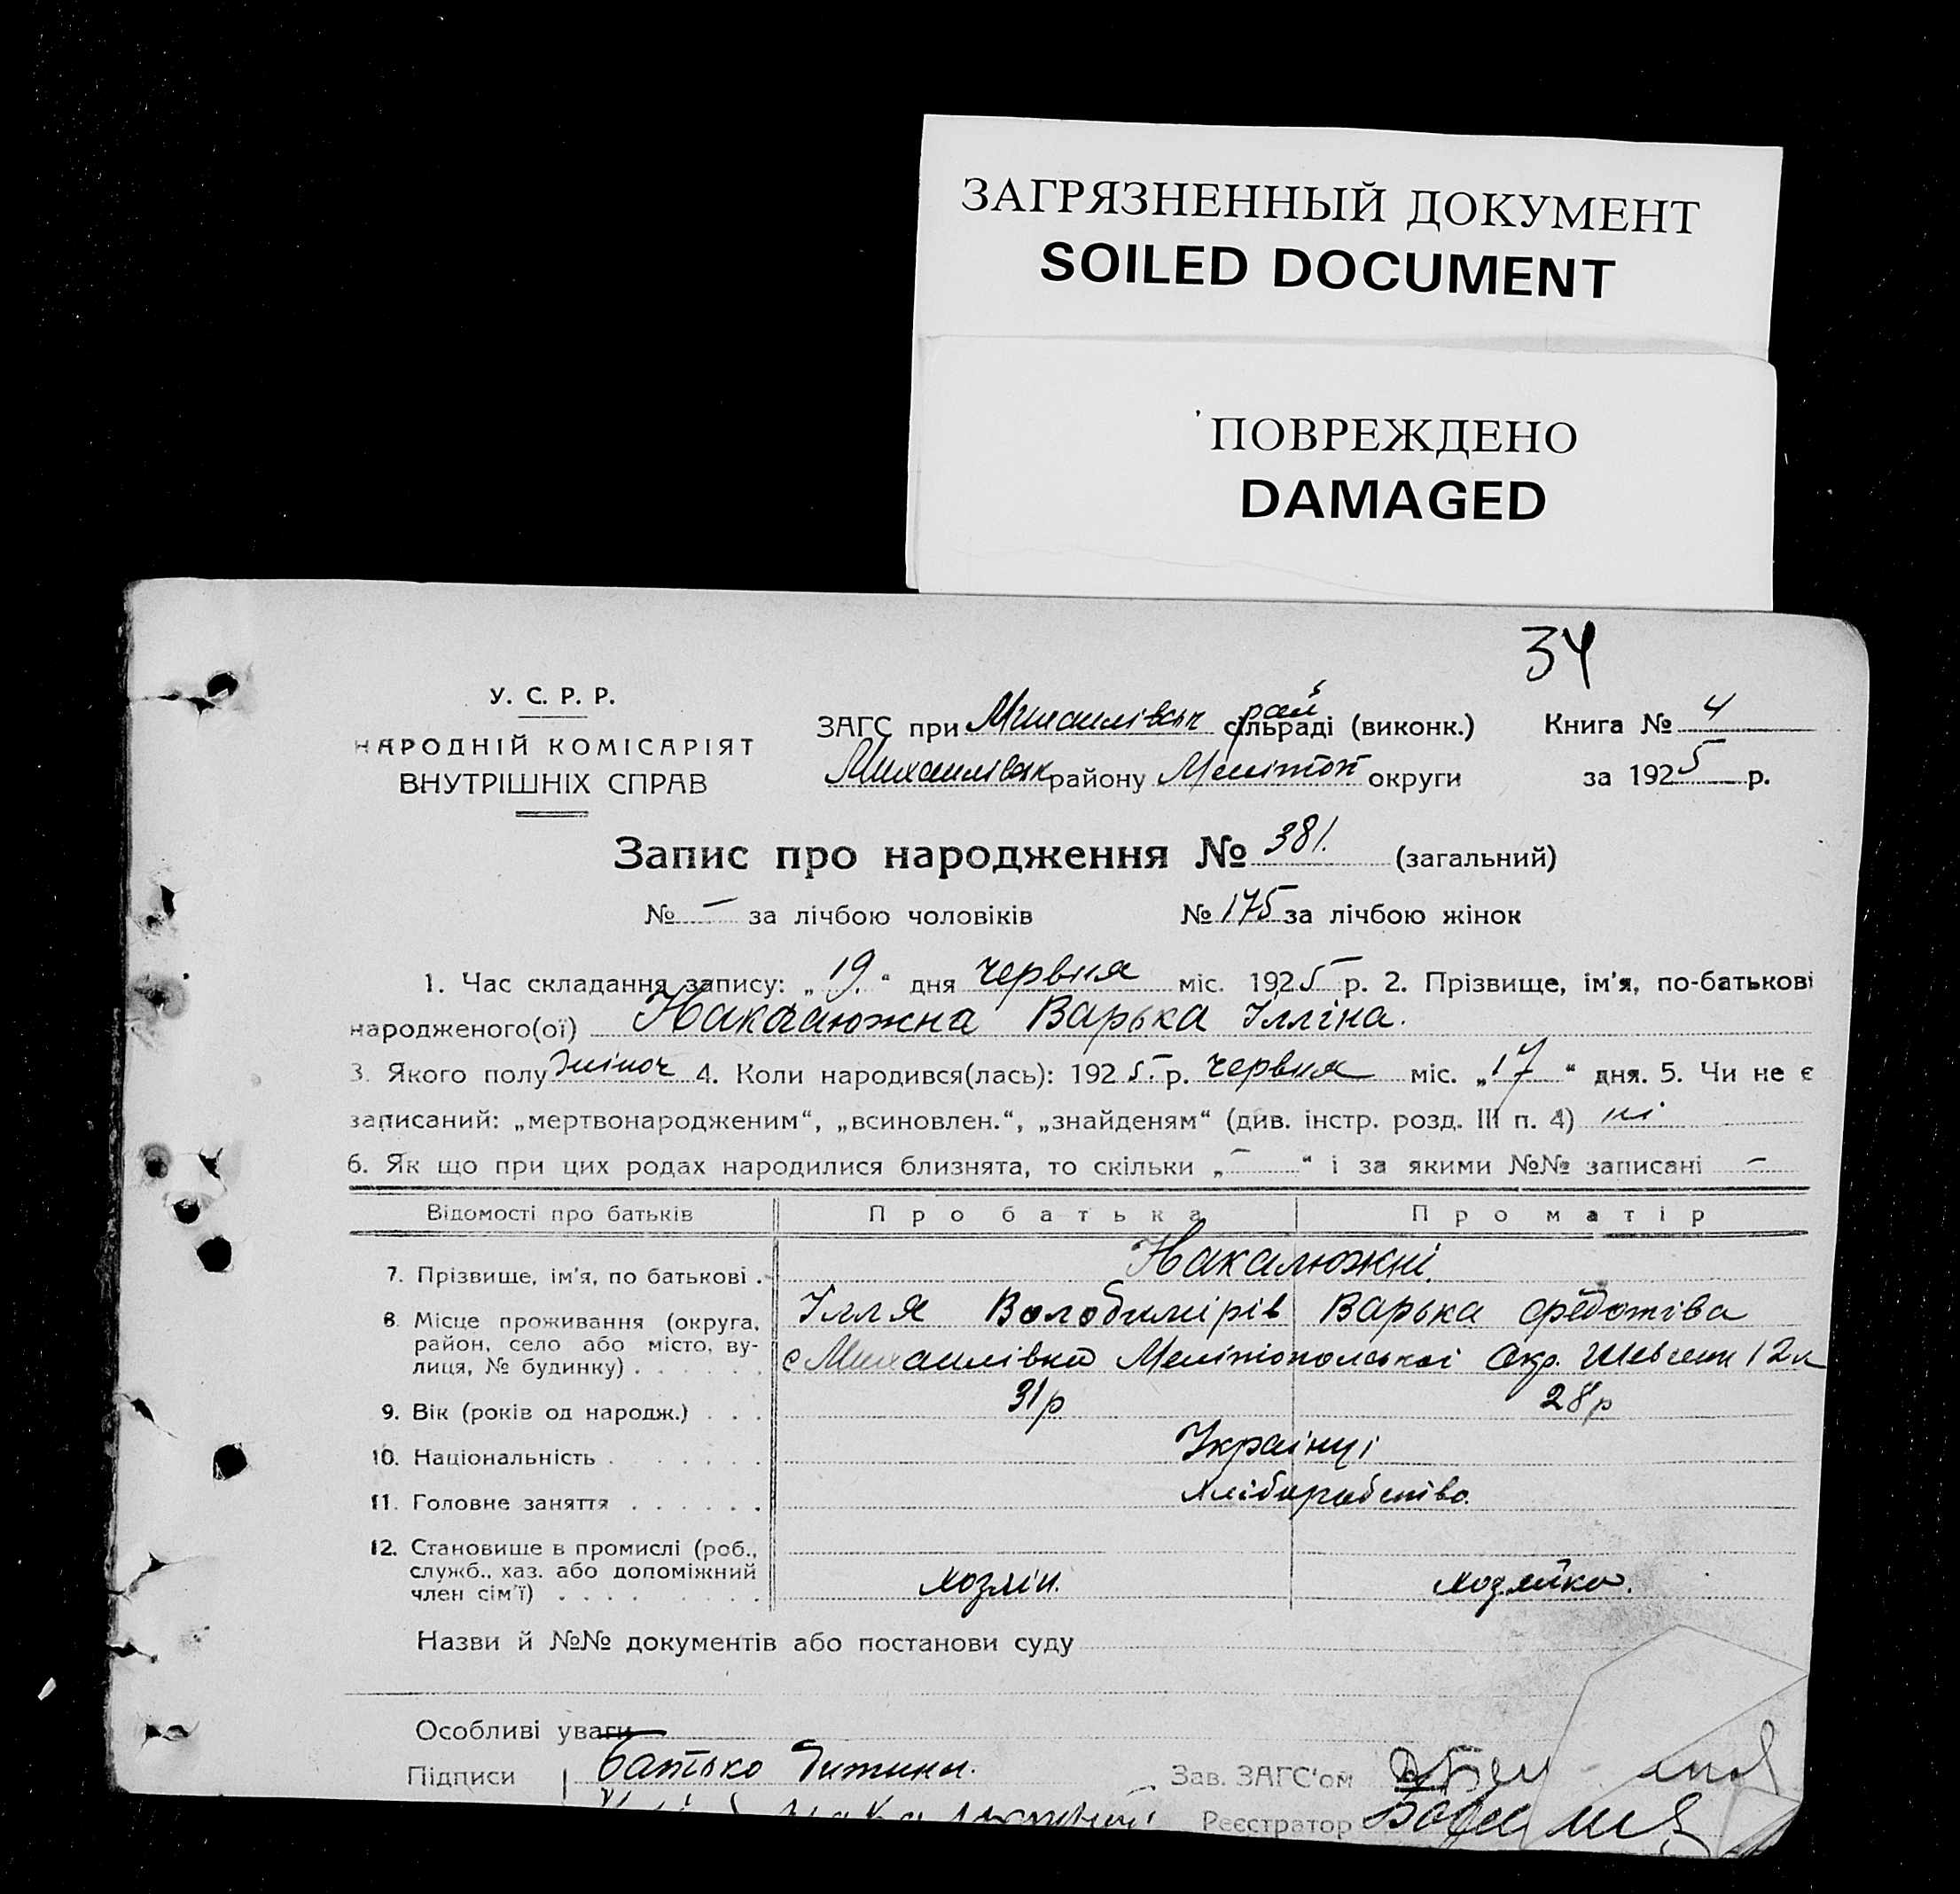 ЗАГРЯЗНЕННЫЙ ДОКУМЕНТ
SOILED DOCUMENT
ПОВРЕЖДЕНО
DAMAGED
34
У. С. Р. Р.
НАРОДНІЙ КОМІСАРІЯТ
ВНУТРІШНІХ СПРАВ
ЗАГС при Михайлівськ рай сільраді (виконк.) Книга № 4
Михайлівськ району Мелітоп округи за 1925 р.
Запис про народження № 381. (загальний)
№ – за лічбою чоловіків № 175 за лічбою жінок
1. Час складання запису: „19.“ дня червня міс. 1925 р. 2. Прізвище, ім'я, по-батькові
народженого(ої) Накалюжна Варька Ілліна.
3. Якого полу жіноч 4. Коли народився(лась): 1925 р. червня міс. „17“ дня. 5. Чи не є
записаний: „мертвонародженим“, „всиновлен.“, „знайденям“ (див. інстр. розд. III п. 4) ні
6. Як що при цих родах народилися близнята, то скільки „–“ і за якими №№ записані –
Відомості про батьків Про батька Про матір
7. Прізвище, ім'я, по батькові . Накалюжні.
Ілля Володимірів Варька Федотіва
8. Місце проживання (округа, район, село або місто, вулиця, № будинку) . . . . . . с Михаилівка Мелітопольської Окр. 12
9. Вік (років од народж.) . . . 31 р 28 р
10. Національність . . . . . . Українці
11. Головне заняття . . . . . . Хліборобство.
12. Становище в промислі (роб., служб., хаз. або допоміжний член сім'ї) . . . . . . . . хозяін. хозяйка.
Назви й №№ документів або постанови суду
Особливі уваги
Підписи Батько дитини. Зав. ЗАГС'ом
Реєстратор